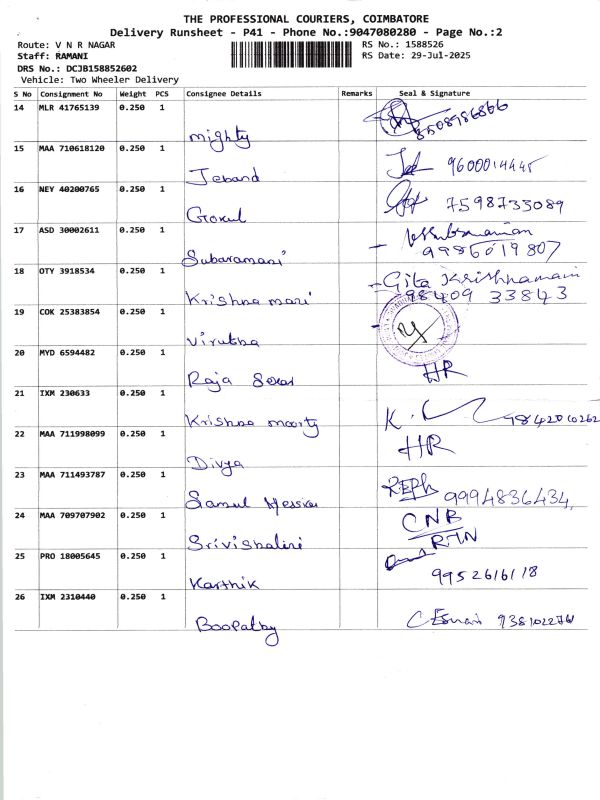 THE PROFESSIONAL COURIERS, COIMBATORE
Delivery Runsheet - P41 - Phone No.:9047080280 - Page No.:2
Route: V N R NAGAR RS No.: 1588526
Staff: RAMANI RS Date: 29-Jul-2025
DRS No.: DCJB158852602
Vehicle: Two Wheeler Delivery
S No Consignment No Weight PCS Consignee Details Remarks Seal & Signature
14 MLR 41765139 0.250 1
mighty 9508986866
15 MAA 710618120 0.250 1
Jeband 9600014445
16 NEY 40200765 0.250 1
Gokul 7598733089
17 ASD 30002611 0.250 1
Subaramani 9986019807
18 OTY 3918534 0.250 1 Gita Krishnamani
Krishna mari 98409 33843
19 COK 25383854 0.250 1
Virutha
20 MYD 6594482 0.250 1
Raja Sekar HR
21 IXM 230633 0.250 1
Krishna moorty K. 9842010262
22 MAA 711998099 0.250 1 HR
Divya
23 MAA 711493787 0.250 1
Samul Messiar 9994836434,
24 MAA 709707902 0.250 1 CNB
Srivishalini RTN
25 PRO 18005645 0.250 1
Karthik 9952616118
26 IXM 2310440 0.250 1
Boopathy 9381022761